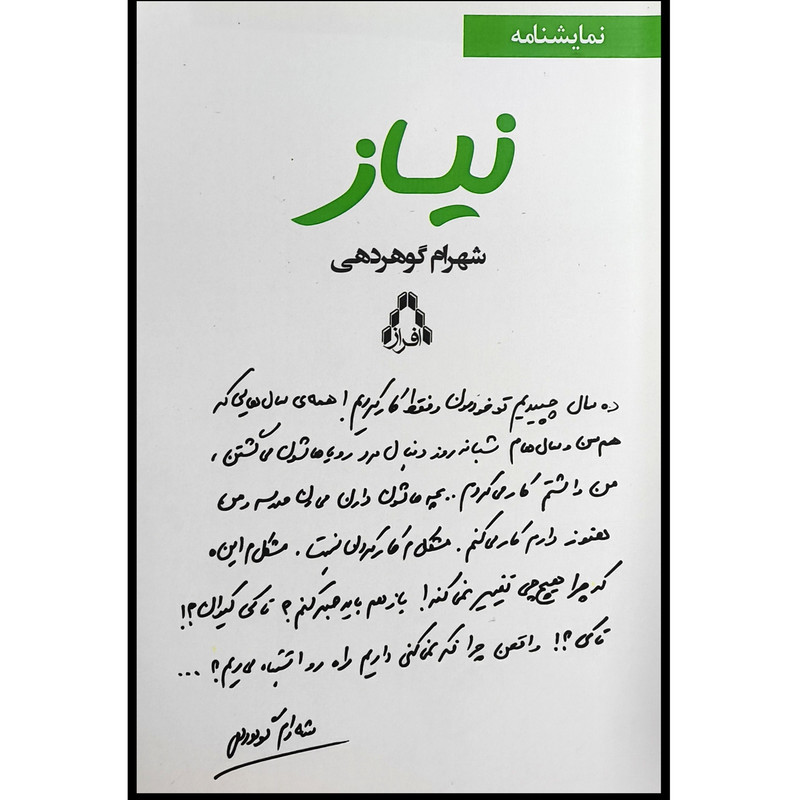 نمایشنامه
نیاز
شهرام گوهردهی
افراز
ده سال چپیدیم تو خودمون و فقط کار کردیم! همه‌ی سال‌هایی که
هم‌سن و سال‌هام شبانه روز دنبال مرد رویاهاشون می‌گشتن،
من داشتم کار می‌کردم.. بچه‌هاشون دارن میرن مدرسه و من
هنوز دارم کار می‌کنم. مشکلم کار کردن نیست. مشکلم اینه
که چرا هیچ‌چی تغییر نمی‌کنه! باز هم باید صبر کنم؟ تا کی کیوان؟!
تا کی؟! واقعن چرا فکر نمی‌کنی داریم راه رو اشتباه می‌ریم؟...
شهرام گوهردهی